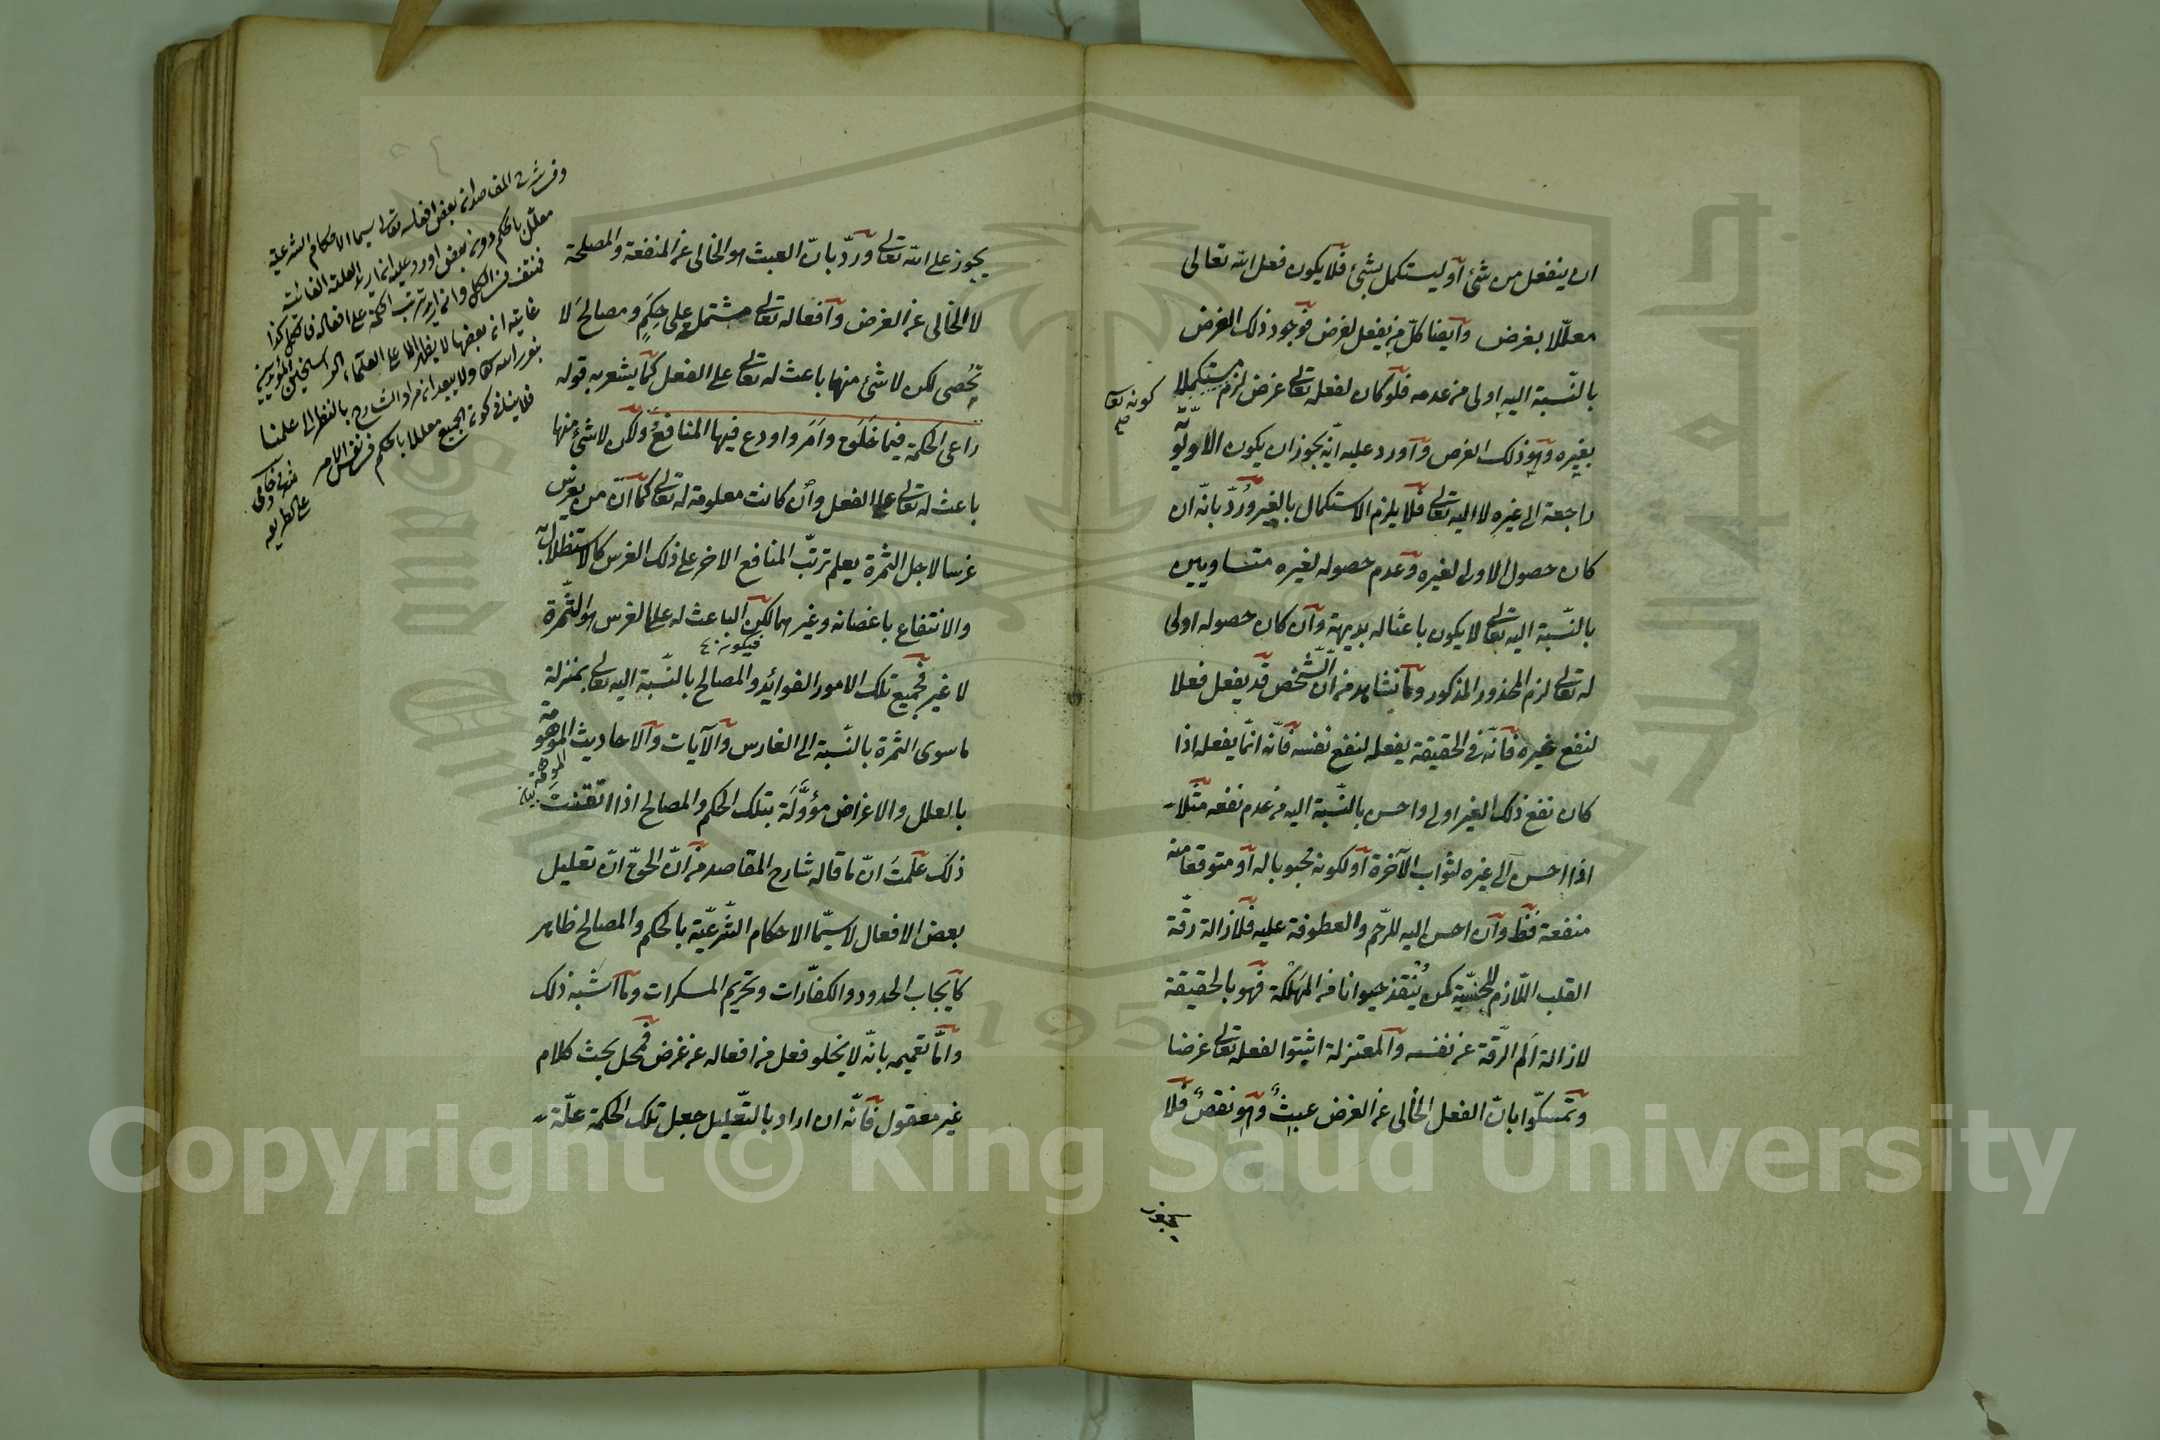 ان ينفعل من شئ او يستكمل بشئ فلا يكون فعل الله تعالى
معلّلا بغرض وايضا كلّ من يفعل لغرض فوجود ذلك الغرض
بالنّسبة اليه اولى من عدمه فلو كان لفعله تعالى غرض لزم مستكملا
كونه تعا
صح
بغيره وهو ذلك الغرض واورد عليه انّه يجوز ان يكون الاولويّة
راجعة الى غيره لا اليه تعالى فلا يلزم الاستكمال بالغير ورُدّ بانّه ان
كان حصول الاولى لغيره وعدم حصوله لغيره متساويين
بالنّسبة اليه تعالى لا يكون باعثا له بديهة وان كان حصوله اولى
له تعالى لزم المحذور المذكور وما نشاهد من ان الشّخص قد يفعل فعلا
لنفع غيره فانّه في الحقيقة يفعله لنفع نفسه فانّه انّما يفعله اذا
كان نفع ذلك الغير اولى واحسن بالنّسبة اليه من عدم نفعه مثلا
اذا احسن الى غيره لثواب الآخرة او لكونه محبوبا له او متوقعا منه
منفعة فقط وان احسن اليه للرّحم والعطوفة عليه فلازالة رقّة
القلب اللّازم للجنسيّة كمن يُنقذ حيوانا من المَهلكة فهو بالحقيقة
لازالة الم الرّقة عن نفسه والمعتزلة اثبتوا لفعله تعالى غرضا
وتمسكّوا بانّ الفعل الخالى عن الغرض عبثٌ وهو نقصٌ فلا
يجوز
يجوز على الله تعالى ورُدّ بانّ العبث هو الخالى عن المنفعة والمصلحة
لا الخالى عن الغرض وافعاله تعالى مشتملة على حِكَمٍ ومصالح لا
تُحصى لكن لا شئ منها باعث له تعالى على الفعل كما يشعر به قوله
راعى الحكمة فيما خَلَق وامَر واودع فيها المنافعُ ولكن لا شئ منها
باعث له تعالى على الفعل وان كانت معلومة له تعالى كما ان من يغرس
غرسا لاجل الثمرة يعلم ترتّب المنافع الاخر على ذلك الغرس كالاستظلال به
والانتفاع باغصانه وغيرهما لكن الباعث له على الغرس هو الثّمرة
فيكونه
لا غير فجميع تلك الامور الفوائد والمصالح بالنّسبة اليه تعالى بمنزلة
ما سوى الثمرة بالنّسبة الى الغارس والآيات والاحاديث الموهومة
الموهمة
بالعلل والاغراض مؤوّلَة بتلك الحكم والمصالح اذا اتقنتَ
ذلك علمتَ انّ ما قاله شارح المقاصد من انّ الحقّ انّ تعليل
بعض الافعال لا سيّما الاحكام الشّرعيّة بالحكم والمصالح ظاهر
كايجاب الحدود والكفّارات وتحريم المسكرات وما اشبه ذلك
وامّا تعميمه بانّه لا يخلو فعل من افعاله عن غرض فمحل بحث كلام
غير معقول فانّه ان اراد بالتّعليل جعل تلك الحكمة علّة
وفى شرح المقاصد ان بعض افعاله تعالى سيما الاحكام الشرعية
معلّل بالحكم دون بعض اورد عليه انه ان اراد العلة الغائية
فمنتف فى الكل وان اريد ترتب الحكمة على افعاله فالكل كذا
غايته ان بعضها لا يظهر الا على العلماء الراسخين المؤيدين
بنور الله تعالى ولا يبعد ان مراد الشارح بالنظر الى علمنا
فلا ينافى كون الجميع معللا بالحكم فى نفس الامر
على الطريقه